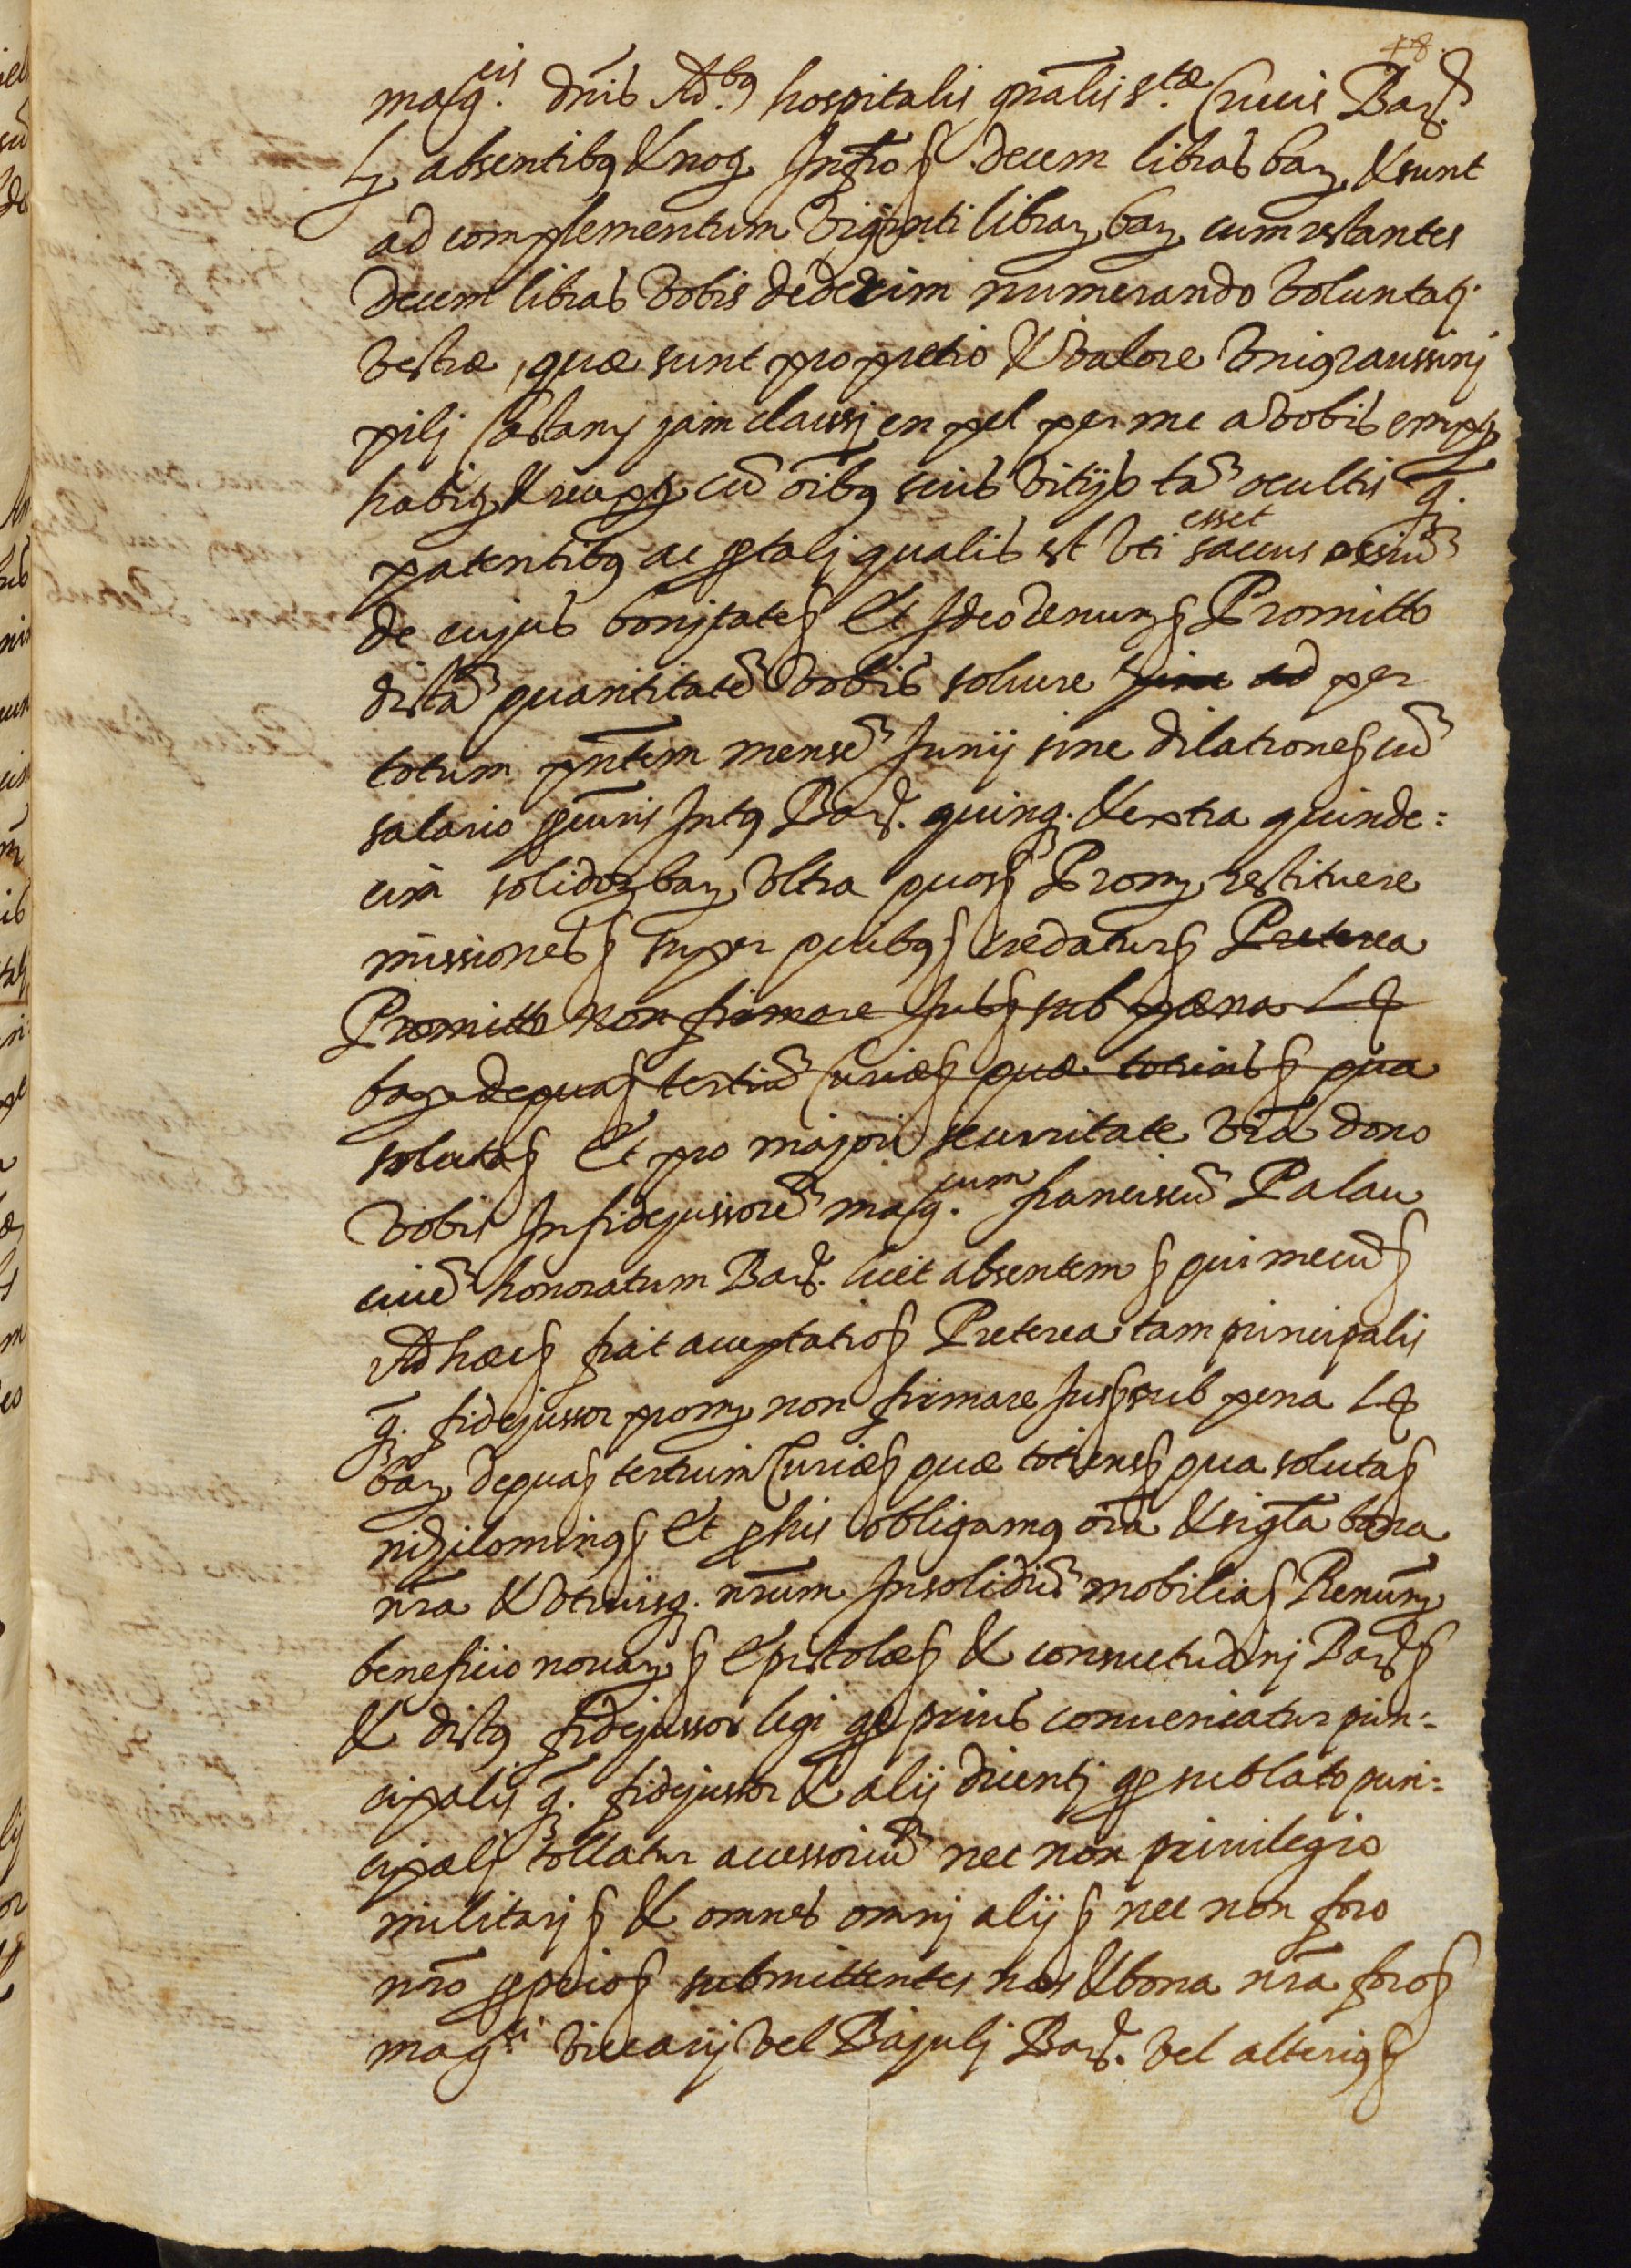 48.
mag.cis dnis Ad.bq hospitalis gnalis S.tæ Crucis Bar.
absentibq & noq Infro§ decem libras bar. & sunt
ad complementum viginti librar. bar. cum restantes
decem libras vobis dederim numerando voluntatj
vestræ, quæ sunt pro pretio & valore vnig raussinj
pilj Castany jam claussj en pel per me a vobis empt.
habitj & recaptj cũ oibq suis vitijs tã ocultis q̃.
patentibq ac p talj qualis est vti esset saccus ossiũ
de cujus bonitate§ Et Ideo renun§ Promitto
dictã quantitatẽ vobis solvere sine ad per
totum pñtem mensẽ Junij sine dilatione§ cũ
salario pcuris Intq Bar. quinq. & extra quinde:
cim solidor. bar. vltra quos§ Prom. restituere
missiones§ super quibq§ credatur§ Preterea
Promitto non firmare Jus§ sub pæna L ₶
bar. de qua§ tertiũ Curiæ§ quæ totiens§ qua
soluta§ Et pro majori securitate vrã dono
vobis In fidejussorẽ mag.cum franciscũ Palau
ciuẽ honoratum Bar. licet absentem§ qui mecũ§
Ad hæc§ fiat acceptatio§ Preterea tam principalis
q̃. fidejussor prom. non firmare Jus§ sub pena L ₶
bar. de qua§ tertium Curiæ§ quæ totiens§ qua soluta§
nihilominq§ Et p his obligamq oĩa & sigla bona
nr̃a & vtriusq. nr̃um Insolidũ mobilia§ Renum.
beneficio novar.§ Epistolæ§ & consuetudinj Bar.§
& dictq fidejussor legi qp prius conueniatur prin:
cipalis q̃. fidejussor & alij dicentj qp sublato prin:
cipalj tollatur accessoriũ nec non priuilegio
militarj§ & omnes omnj alij§ nec non foro
nr̃o pprio§ submittentes nos & bona nr̃a foro§
mag.ci vicarij vel Bajulj Bar. vel alteriq§